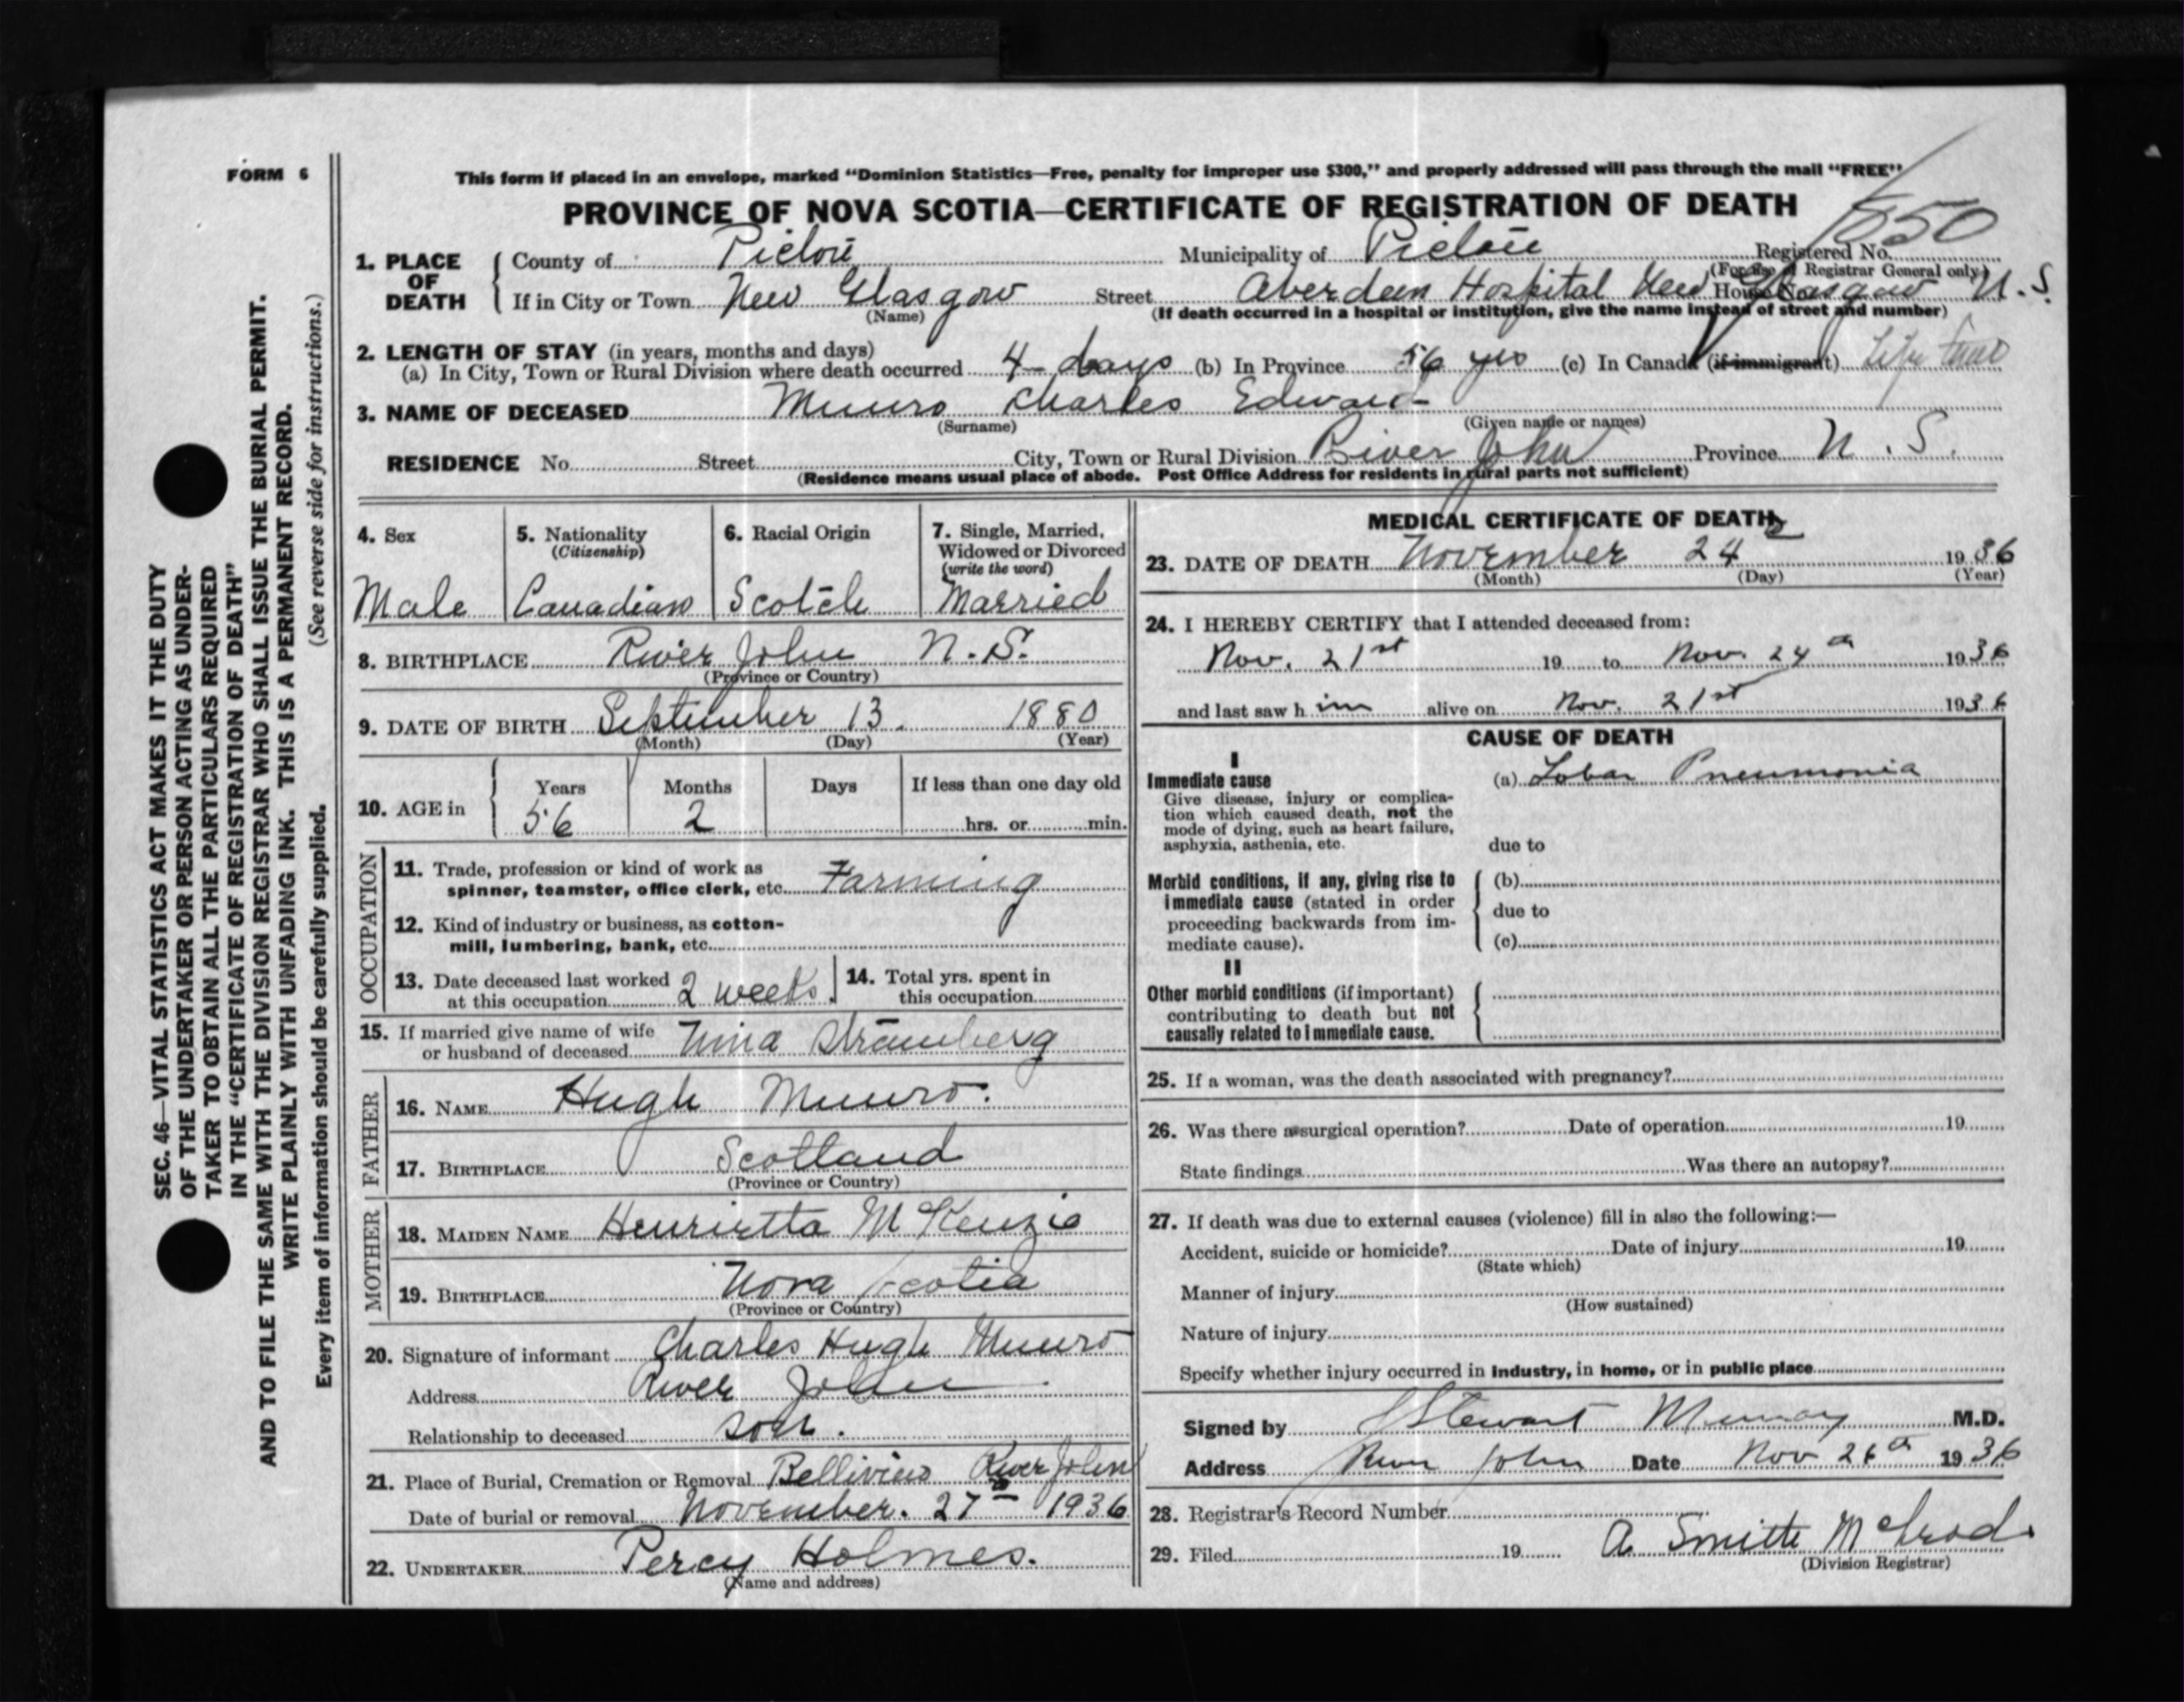 FORM 6
This form if placed in an envelope, marked “Dominion Statistics—Free, penalty for improper use $300,” and properly addressed will pass through the mail “FREE”
PROVINCE OF NOVA SCOTIA—CERTIFICATE OF REGISTRATION OF DEATH
1. PLACE OF DEATH
County of Pictou Municipality of Pictou Registered No.
(For use of Registrar General only)
If in City or Town New Glasgow Street Aberdeen Hospital New Glasgow N.S. House No.
(Name) (If death occurred in a hospital or institution, give the name instead of street and number)
2. LENGTH OF STAY (in years, months and days)
(a) In City, Town or Rural Division where death occurred 4 days (b) In Province 56 yrs (c) In Canada (if immigrant) Life time
3. NAME OF DECEASED Munro Charles Edward
(Surname) (Given name or names)
RESIDENCE No. Street City, Town or Rural Division River John Province N.S.
(Residence means usual place of abode. Post Office Address for residents in rural parts not sufficient)
4. Sex
Male
5. Nationality
(Citizenship)
Canadian
6. Racial Origin
Scotch
7. Single, Married,
Widowed or Divorced
(write the word)
Married
8. BIRTHPLACE River John N.S.
(Province or Country)
9. DATE OF BIRTH September 13. 1880
(Month) (Day) (Year)
10. AGE in
Years Months Days If less than one day old
56 2 hrs. or min.
OCCUPATION
11. Trade, profession or kind of work as
spinner, teamster, office clerk, etc. Farming
12. Kind of industry or business, as cotton-
mill, lumbering, bank, etc.
13. Date deceased last worked
at this occupation 2 weeks.
14. Total yrs. spent in
this occupation
15. If married give name of wife
or husband of deceased Nina Stramberg
FATHER
16. NAME Hugh Munro.
17. BIRTHPLACE Scotland
(Province or Country)
MOTHER
18. MAIDEN NAME Henrietta McKenzie
19. BIRTHPLACE Nova Scotia
(Province or Country)
20. Signature of informant Charles Hugh Munro
Address River John
Relationship to deceased son.
21. Place of Burial, Cremation or Removal River John
Date of burial or removal November. 27th 1936
22. UNDERTAKER Percy Holmes.
(Name and address)
MEDICAL CERTIFICATE OF DEATH
23. DATE OF DEATH November 24th 1936
(Month) (Day) (Year)
24. I HEREBY CERTIFY that I attended deceased from:
Nov. 21st 19 to Nov. 24th 1936
and last saw him alive on Nov. 21st 1936
CAUSE OF DEATH
I
Immediate cause
Give disease, injury or complica-
tion which caused death, not the
mode of dying, such as heart failure,
asphyxia, asthenia, etc.
(a) Lobar Pneumonia
due to
Morbid conditions, if any, giving rise to
immediate cause (stated in order
proceeding backwards from im-
mediate cause).
(b)
due to
(c)
II
Other morbid conditions (if important)
contributing to death but not
causally related to immediate cause.
25. If a woman, was the death associated with pregnancy?
26. Was there a surgical operation? Date of operation 19
State findings Was there an autopsy?
27. If death was due to external causes (violence) fill in also the following:—
Accident, suicide or homicide? Date of injury 19
(State which)
Manner of injury
(How sustained)
Nature of injury
Specify whether injury occurred in industry, in home, or in public place
Signed by Stewart Murray M.D.
Address River John Date Nov 26th 1936
28. Registrar's Record Number
29. Filed 19 A. Smith McLeod.
(Division Registrar)
SEC. 46—VITAL STATISTICS ACT MAKES IT THE DUTY
OF THE UNDERTAKER OR PERSON ACTING AS UNDER-
TAKER TO OBTAIN ALL THE PARTICULARS REQUIRED
IN THE “CERTIFICATE OF REGISTRATION OF DEATH”
AND TO FILE THE SAME WITH THE DIVISION REGISTRAR WHO SHALL ISSUE THE BURIAL PERMIT.
WRITE PLAINLY WITH UNFADING INK. THIS IS A PERMANENT RECORD.
Every item of information should be carefully supplied. (See reverse side for instructions.)